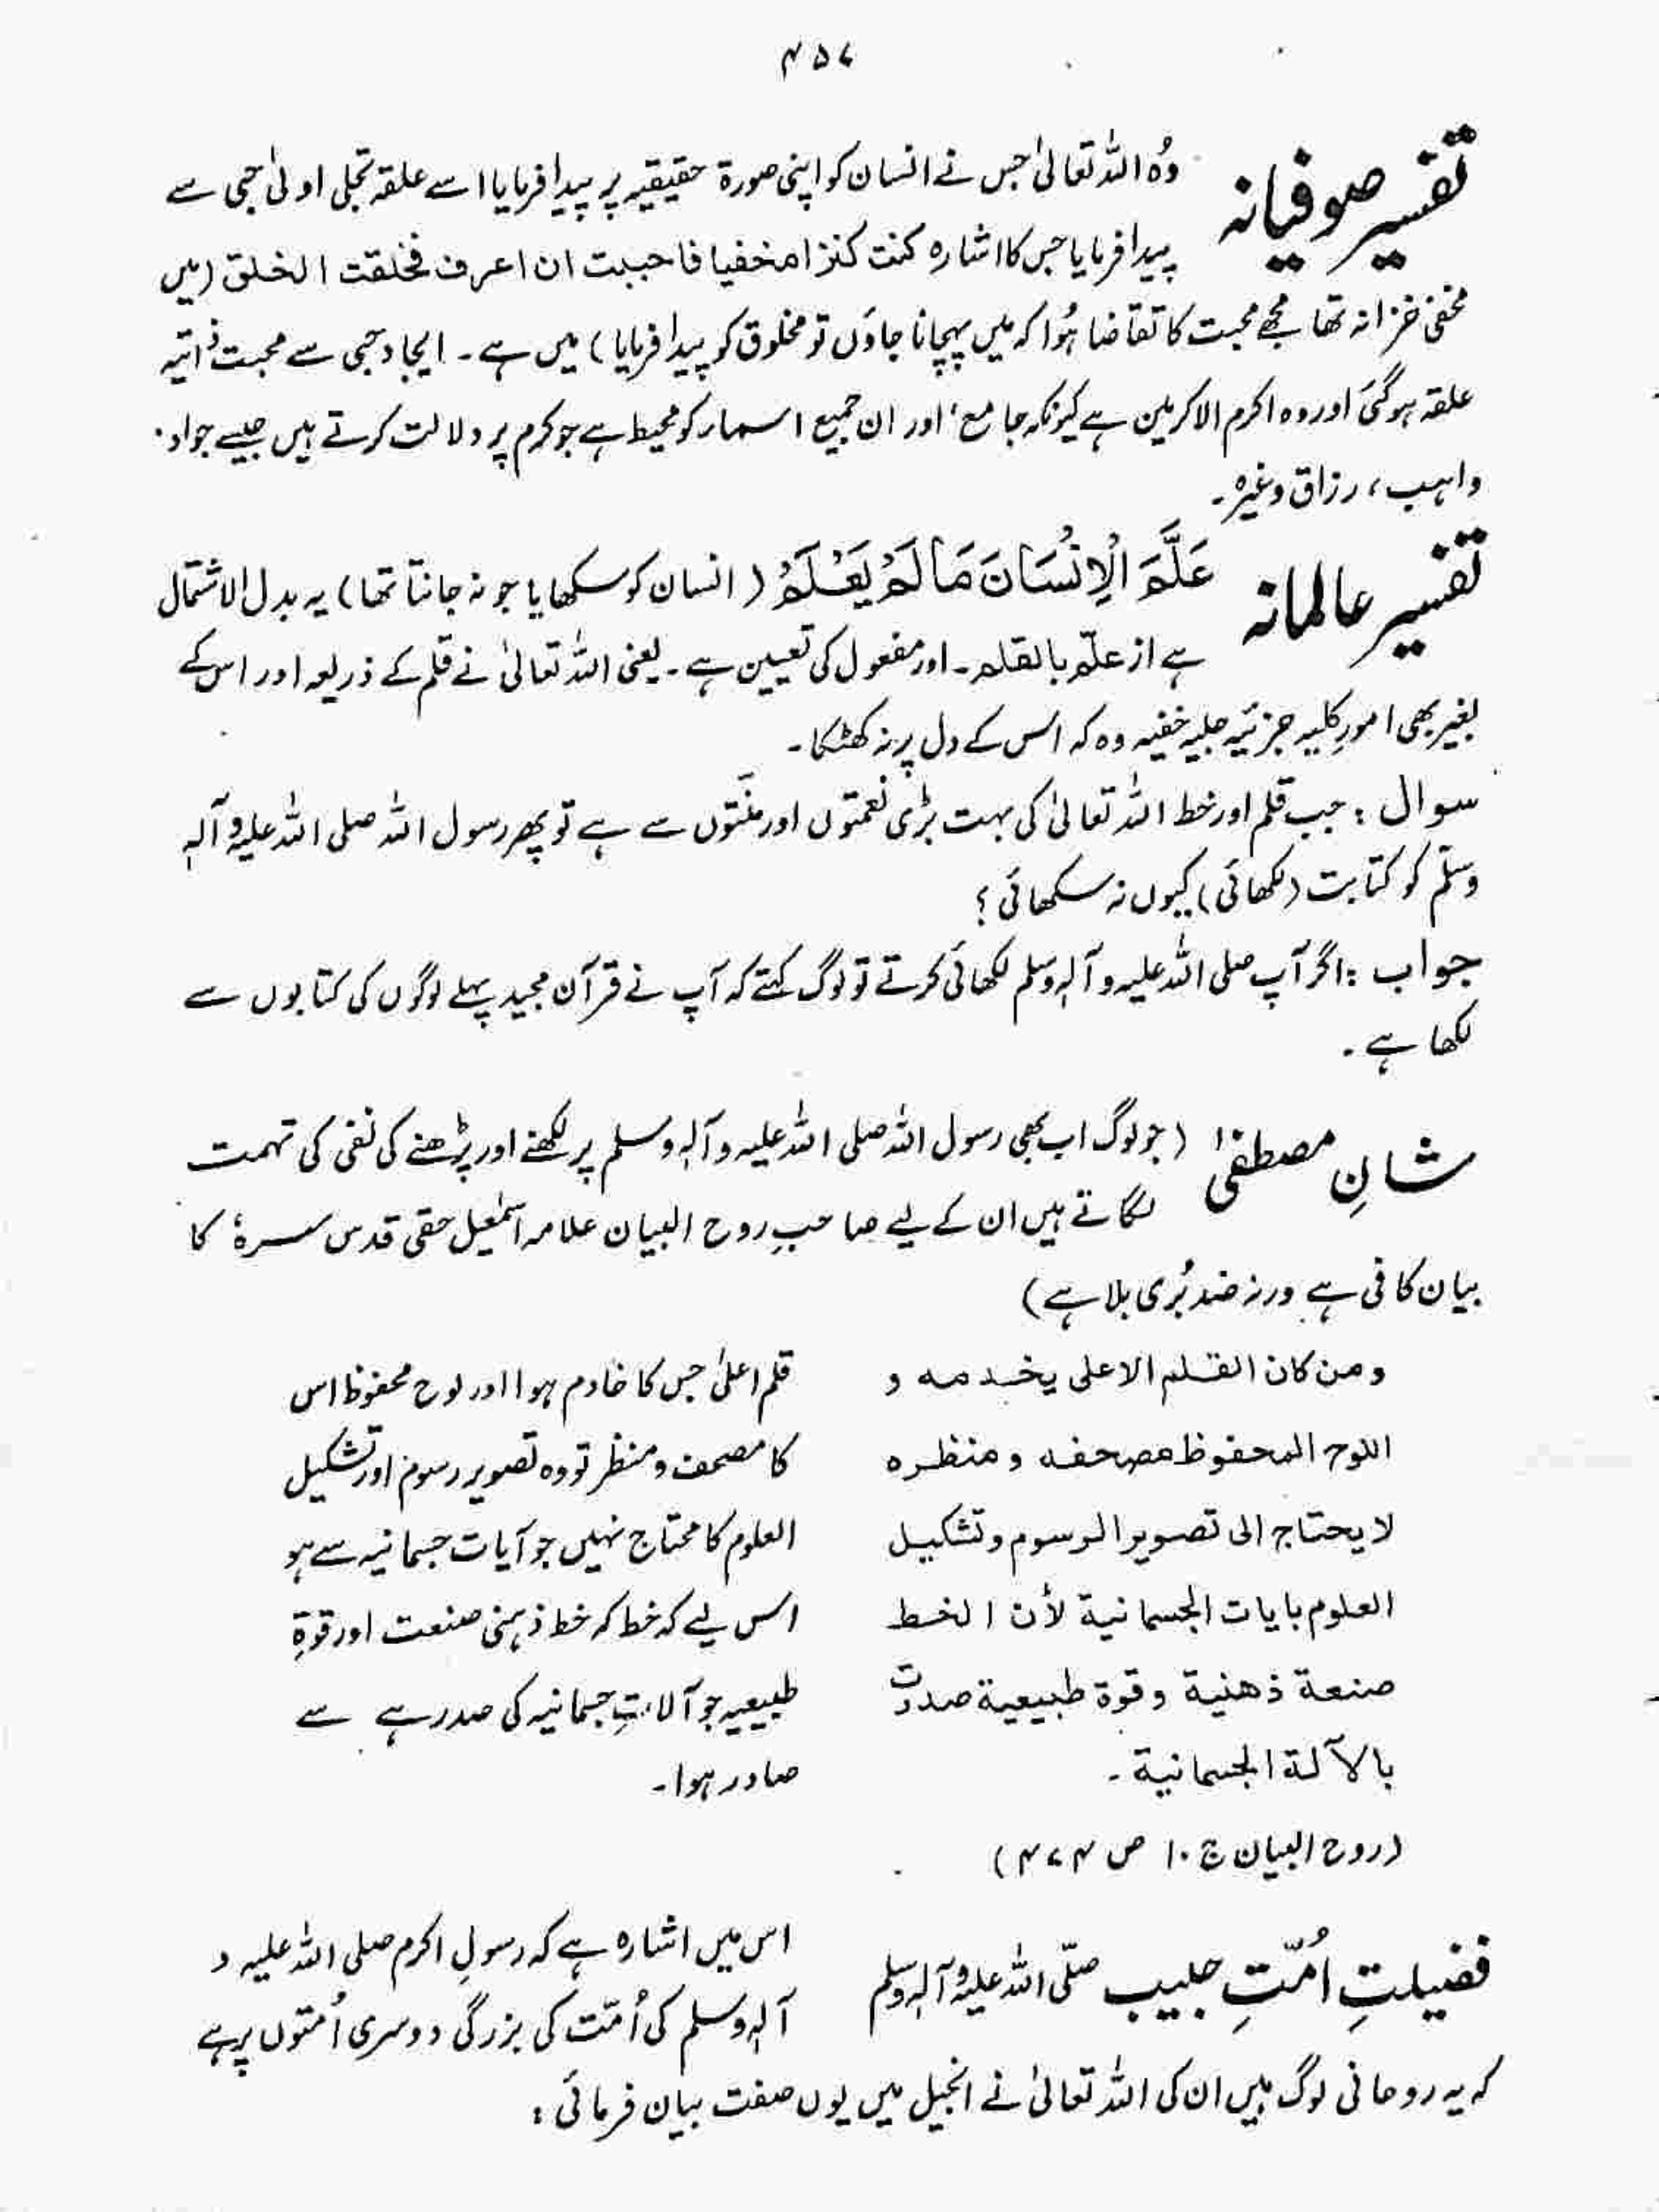 ۴۵۷
تفسیر صوفیانہ وُہ اللہ تعالیٰ جس نے انسان کو اپنی صورۃ حقیقیہ پر پیدا فرمایا اسے علقہ تجلی اولیٰ حبی سے
پیدا فرمایا جس کا اشارہ کنت کنزا مخفیا فاحببت ان اعرف فخلقت الخلق (میں
مخفی خزانہ تھا مجھے محبت کا تقاضا ہُوا کہ میں پہچانا جاؤں تو مخلوق کو پیدا فرمایا) میں ہے۔ ایجاد حبی سے محبت ذاتیہ
علقہ ہو گئی اور وہ اکرم الاکرمین ہے کیونکہ جامع، اور ان جمیع اسماء کو محیط ہے جو کرم پر دلالت کرتے ہیں جیسے جواد،
واہب، رزاق وغیرہ۔
تفسیر عالمانہ عَلَّمَ الْاِنْسَانَ مَا لَمْ یَعْلَمْ (انسان کو سکھایا جو نہ جانتا تھا) یہ بدل الاشتمال
ہے از علّم بالقلم۔ اور مفعول کی تعیین ہے۔ یعنی اللہ تعالیٰ نے قلم کے ذریعہ اور اس کے
بغیر بھی امورِ کلیہ جزئیہ جلیہ خفیہ وہ کہ اس کے دل پر نہ کھٹکا۔
سوال : جب قلم اور خط اللہ تعالیٰ کی بہت بڑی نعمتوں اور منّتوں سے ہے تو پھر رسول اللہ صلی اللہ علیہ وآلہٖ
وسلّم کو کتابت (لکھائی) کیوں نہ سکھائی؟
جواب : اگر آپ صلی اللہ علیہ وآلہٖ وسلم لکھائی کرتے تو لوگ کہتے کہ آپ نے قرآن مجید پہلے لوگوں کی کتابوں سے
لکھا ہے۔
شانِ مصطفیٰ (جو لوگ اب بھی رسول اللہ صلی اللہ علیہ وآلہٖ وسلم پر لکھنے اور پڑھنے کی نفی کی تہمت
لگاتے ہیں ان کے لیے صاحبِ روح البیان علامہ اسمٰعیل حقی قدس سرہٗ کا
بیان کافی ہے ورنہ ضد بُری بلا ہے)
ومن کان القلم الاعلی یخدمه و
اللوح المحفوظ مصحفه ومنظره
لا یحتاج الی تصویر الرسوم وتشکیل
العلوم بایات الجسمانیة لأن الخط
صنعة ذهنیة وقوة طبیعیة صدرت
بالآلة الجسمانیة۔
(روح البیان ج ۱۰ ص ۴۷۴)
قلم اعلیٰ جس کا خادم ہوا اور لوح محفوظ اس
کا مصحف و منظر تو وہ تصویر رسوم اور تشکیل
العلوم کا محتاج نہیں جو آیات جسمانیہ سے ہو
اس لیے کہ خط کہ خط ذہنی صنعت اور قوۃِ
طبیعیہ جو آلاتِ جسمانیہ کی صدر ہے سے
صادر ہوا۔
فضیلتِ اُمّتِ حبیب صلّی اللہ علیہ وآلہٖ وسلم اس میں اشارہ ہے کہ رسولِ اکرم صلی اللہ علیہ و
آلہٖ وسلم کی اُمّت کی بزرگی دوسری اُمتوں پر ہے
کہ یہ روحانی لوگ ہیں ان کی اللہ تعالیٰ نے انجیل میں یوں صفت بیان فرمائی :